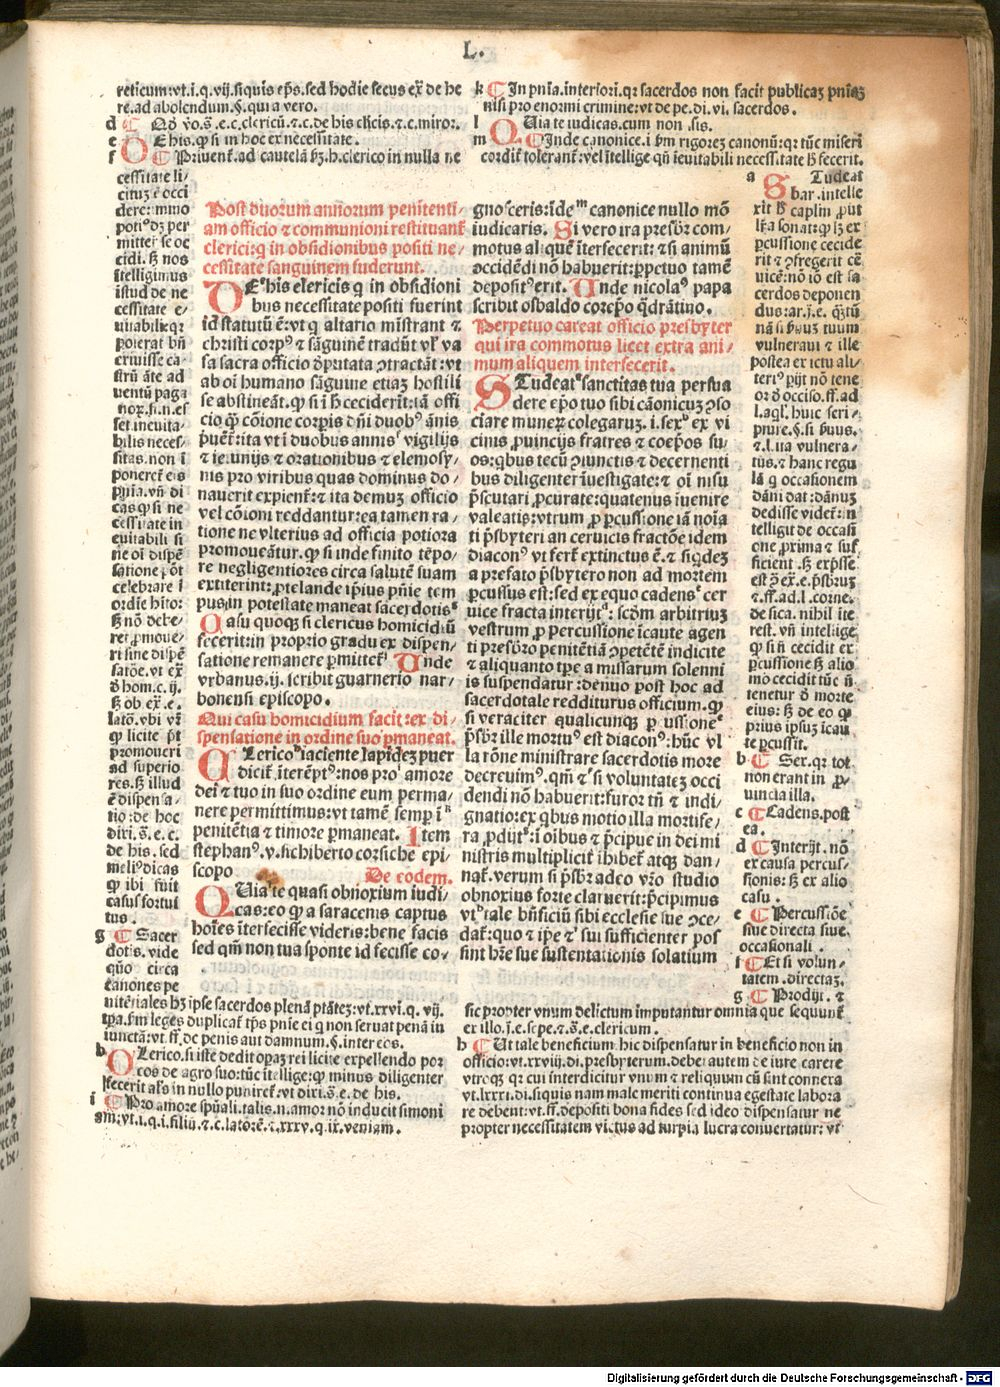 L.
reticum:vt.i.q.vij.siquis ep̄s.sed hodie secus ex̄ de he
re.ad abolendum.§.qui a vero.
d Qđ v̊o.s̄.e.c.clericū.⁊.c.de his cl̄icis.⁊.c.miror.
e De his.qꝫ si in hoc ex necessitate.
f Priuent᷑.ad cautelā hꝫ.h.clerico in nulla ne
cessitate li/
citū ē occi
dere: immo
poti⁹ dꝫ per
mittere se oc
cidi.sꝫ nos
ītelligimus
istud de ne
cessitate e/
uitabili:qꝛ
poterat bn̄
exiuisse ca/
strū āte ad
uentū paga
noꝝ.si.n.es
set ineuita/
bilis neces/
sitas.non ī
poneret᷑ eis
pn̄ia.vn̄ di
cas qꝫ si ne
cessitate in
euitabili si
ne oī dispē
satione pōt
celebrare ī
ordīe hito:
sꝫ nō debe/
ret ꝓmoue/
ri sine dispē
satōe.vt ex̄
đ hom.c.ij.
sꝫ ob ex̄.e.
latō.vbi vr̄
ꝙ licite pn̄t
promoueri
ad superio
res.sꝫ illud
ē dispensa/
tio:de hoc
dixi.s̄.e.c.
de his.sed
meli⁹ dicas
ꝙ ibi fuit
casus fortui
tus.
g Sacer
dotis.vide
quō circa
canones pe
nitētiales hꝫ ipse sacerdos plenā p̄tātē:vt.xxvi.q.vij.
tp̄a.sm̄ leges duplicat᷑ tp̄s pnīe ei q̄ non seruat penā in
iunctā:vt.ff.de penis aut damnum.§.inter eos.
h Clerico.si iste dedit opaꝫ rei licite expellendo por
cos de agro suo:tūc ītellige:ꝙ minus diligenter
fecerit al̄s in nullo puniret᷑:vt dixi.s̄.e.de his.
i Pro amore sp̄uali.talis.n.amor nō inducit simoni
am:vt.i.q.i.filiū.⁊.c.latorē.⁊.xxxv.q.ix.veniam.
Post duorum annorum penitenti/
am officio ⁊ communioni restituant᷑
clerici:q̄ in obsidionibus positi ne/
cessitate sanguinem fuderunt.
De his clericis q̄ in obsidioni
bus necessitate positi fuerint
id statutū ē:vt q̄ altario mīstrant ⁊
christi corp⁹ ⁊ sāguinē tradūt vl̓ va
sa sacra officio đputata ꝯtractāt:vt
ab oī humano sāguine etiaꝫ hostili
se abstineāt.ꝙ si ī h̄ ceciderīt:tā offi
cio ꝙ̄ cōione corꝑis dn̄i duob⁹ ānis
p̓uēt᷑:ita vt ī duobus annis vigilijs
⁊ ieiunijs ⁊ orationibus ⁊ elemosy/
nis pro viribus quas dominus do/
nauerit expient᷑:⁊ ita demuꝫ officio
vel cōioni reddantur:ea tamen ra/
tione ne vlterius ad officia potiora
promoueātur.ꝙ si inde finito tēpo/
re negligentiores circa salutē suam
extiterint:ꝓtelande ip̄ius pn̄ie tem
pus:in potestate maneat sacerdotis
Casu quoqꝫ si clericus homicidiū
fecerit:in proprio gradu ex dispen/
satione remanere permittet᷑ Unde
vrbanus.ij.scribit guarnerio nar/
bonensi episcopo.
Qui casu homicidium facit:ex di/
spensatione in ordine suo ꝑmaneat.
Clerico iaciente lapidez puer
dicit᷑ īterēpt⁹:nos pro amore
dei ⁊ tuo in suo ordine eum perma/
nere permittimus:vt tamē semꝑ ī
penitētia ⁊ timore ꝑmaneat. Item
stephan⁹.v.fichiberto corsiche epi/
scopo De eodem.
Quia te quasi obnoxium iudi/
cas:eo ꝙ a saracenis captus
hoīes īterfecisse videris:bene facis
sed qm̄ non tua sponte id fecisse co/
k In pn̄ia.interiori.qꝛ sacerdos non facit publicaꝫ pniaꝫ
nisi pro enormi crimine:vt de pe.di.vi.sacerdos.
l Quia te iudicas.cum non sis.
m Unde canonice.i.sm̄ rigoreꝫ canonū:qꝛ tūc miseri
cordit᷑ tolerant᷑:vel ītellige qn̄ ieuitabili necessitate h̄ fecerit.
gnosceris:ide canonice nullo mō
iudicaris. Si vero ira presbr̄ com/
motus al̓quē īterfecerit:⁊ si animū
occidēdi nō habuerit:ꝑpetuo tamē
deposit⁹ erit. Unde nicola⁹ papa
scribit osbaldo coep̄o q̄dratino.
Perpetuo careat officio presbyter
qui ira commotus licet extra ani/
mum aliquem interfecerit.
Studeat sanctitas tua persua
dere ep̄o tuo sibi cānonicuꝫ ꝯso
ciare numeꝝ colegarum.i.sex ex vi
cinis ꝓuincijs fratres ⁊ coep̄os su/
os:qbus tecū ꝯiunctis ⁊ decernenti
bus diligenter īuestigate:⁊ oī nisu
p̄scutari ꝓcurate:quatenus iuenire
valeatis:vtrum ꝓ ꝑcussione iā noīa
ti p̄sbyteri an ceruicis fractōe idem
diacon⁹ vt fert᷑ extinctus ē.⁊ siqdeꝫ
a prefato p̄sbytero non ad mortem
ꝑcussus est:sed ex equo cadens cer
uice fracta interijt:scd̄m arbitriuꝫ
vestrum ꝓ percussione īcaute agen
ti presbr̄o penitētiā ꝯpetētē indicite
⁊ aliquanto tꝑe a missarum solenni
is suspendatur:denuo post hoc ad
sacerdotale redditurus officium.ꝙ
si veraciter qualicunqꝫ ꝑcussione
p̄sbr̄ ille mortu⁹ est diacon⁹:hūc vl
la rōne ministrare sacerdotis more
decreuim⁹.qm̄ ⁊ si voluntateꝫ occi
dendi nō habuerit:furor tn̄ ⁊ indi/
gnatio:ex qbus motio illa mortife/
ra ꝓdijt:ī oībus ⁊ p̄cipue in dei mi
nistris multiplicit᷑ ihibet᷑ atqꝫ dan/
nat᷑.verum si p̄sbr̄ adeo vr̄o studio
obnoxius forte claruerit:p̄cipimus
vt tale bn̄ficiū sibi ecclesie sue ꝯce/
dat᷑:quo ⁊ ip̄e ⁊ sui sufficienter pos
sint hr̄e sue sustentationis solatium
a Studeat
bar.intelle
xit h̄ caplm̄ ꝓut
lr̄a sonat:ꝙ lꝫ ex
ꝑcussione cecide
rit ⁊ ꝯfregerit cē
uicē:nō iō est sa
cerdos deponen
dus:ar.j.e.q̄tū
nā si s̓uuꝫ tuum
vulneraui ⁊ ille
postea ex ictu al/
teri⁹ pijt nō tene
or đ occiso.ff.ad
l.aql̓.huic scri/
pture.§.si s̓uus.
⁊.l.ita vulnera/
tus.⁊ hanc regu
lā q̄ occasionem
dāni dat:dānuꝫ
dedisse videt᷑:in
telligit de occasi
one ꝓxima ⁊ suf
ficient᷑.sꝫ exp̄sse
est ꝯ̄ ex̄.e.p̄sbr̄ꝫ
⁊.ff.ad.l.corne.
de sica.nihil īte
rest.vn̄ intellige
ꝙ si n̄ cecidit ex
ꝑcussione sꝫ alio
mō cecidit tūc n̄
tenetur đ morte
eius:sꝫ de eo ꝙ
prius ipsuꝫ īcau
te ꝑcussit.
b Sex.qꝛ tot
non erant in ꝓ/
uincia illa.
c Cadens.post
ea.
d Interijt.nō
ex causa percus/
sionis:sꝫ ex alio
casu.
e Percussiōe
siue directa siue.
occasionali.
f Et si volun/
tatem.directaꝫ.
g Prodijt.⁊
sic propter vnum delictum imputantur omnia que sequunt᷑
ex illo.j.e.sepe.⁊.s̄.e.clericum.
h Ut tale beneficium hic dispensatur in beneficio non in
officio:vt.xxviii.di.presbyterum.debet autem de iure carere
vtroqꝫ qꝛ cui interdicitur vnum ⁊ reliquum cū sint connexa
vt.lxxxi.di.siquis nam male meriti continua egestate labora
re debent:vt.ff.depositi bona fides sed ideo dispensatur ne
propter necessitatem victus ad turpia lucra conuertatur:vt
Digitalisierung gefördert durch die Deutsche Forschungsgemeinschaft - DFG